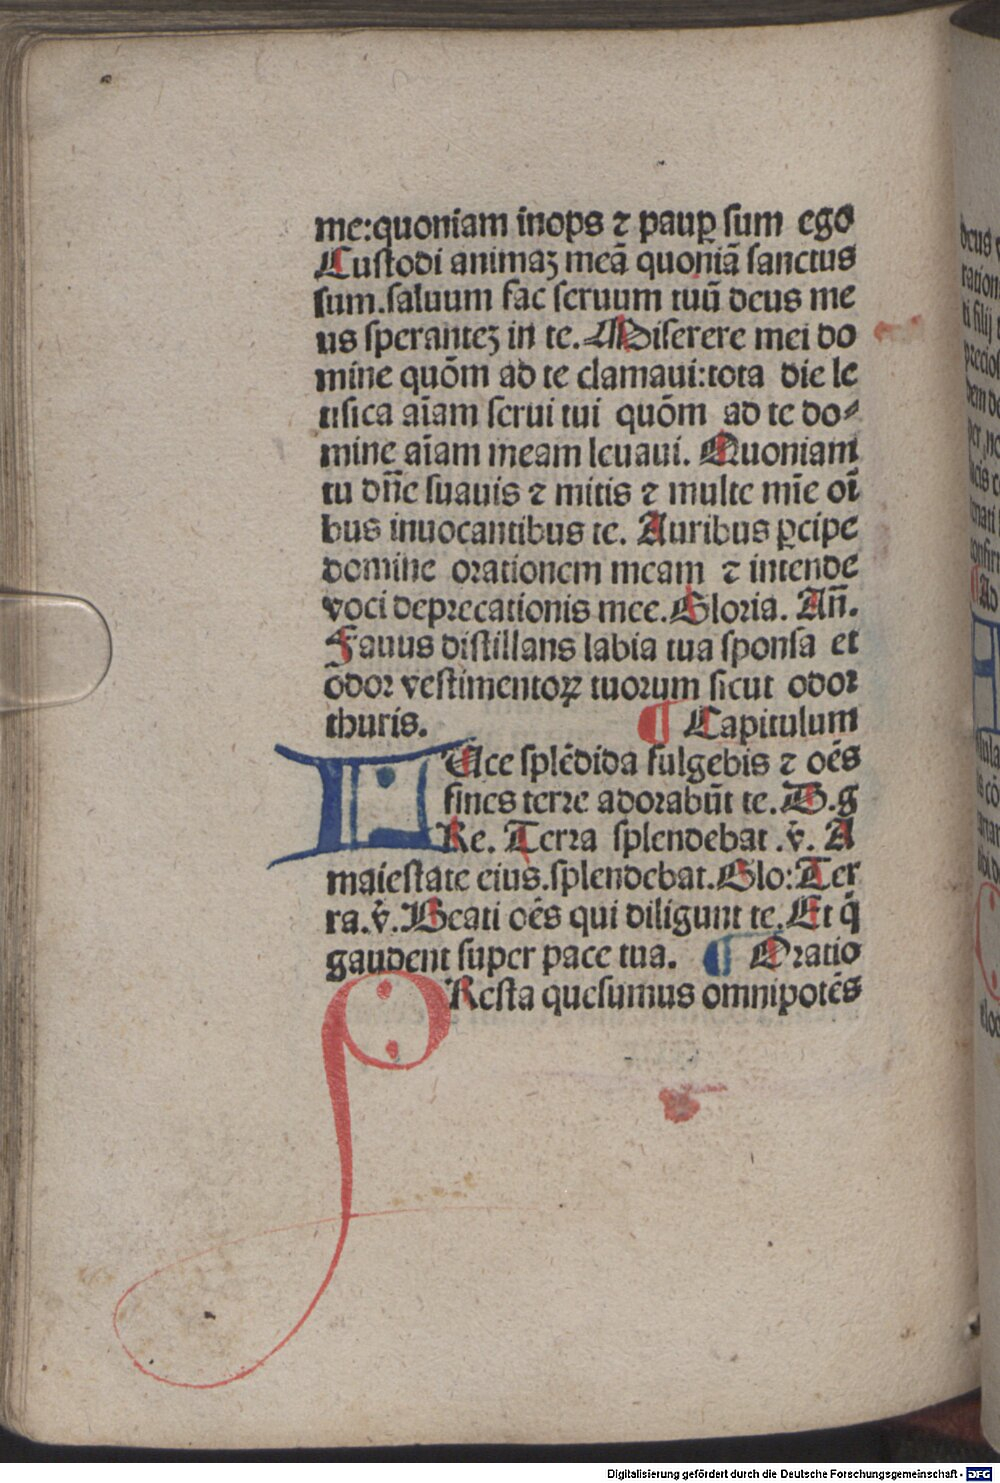 me:quoniam inops ⁊ paup̲ sum ego
Custodi animaꝫ meā quoniā sanctus
sum.saluum fac seruum tuū deus me
us speranteꝫ in te. Miserere mei do
mine quōm ad te clamaui:tota die le
tifica aīam serui tui quōm ad te do⸗
mine aīam meam leuaui. Quoniam
tu dn̄e suauis ⁊ mitis ⁊ multe mīe oī
bus inuocantibus te. Auribus ꝑcipe
domine orationem meam ⁊ intende
voci deprecationis mee. Gloria. Añ.
Fauus distillans labia tua sponsa et
ōdor vestimentoꝝ tuorum sicut odor
thuris. ¶ Capitulum
LUce splēdida fulgebis ⁊ oēs
fines terre adorabūt te. D.g
Re. Terra splendebat .v̄. A
maiestate eius.splendebat.Glo:Ter
ra.v̄.Beati oēs qui diligunt te. Et q̄
gaudent super pace tua. ¶ Oratio
PResta quesumus omnipotēs
Digitalisierung gefördert durch die Deutsche Forschungsgemeinschaft - DFG